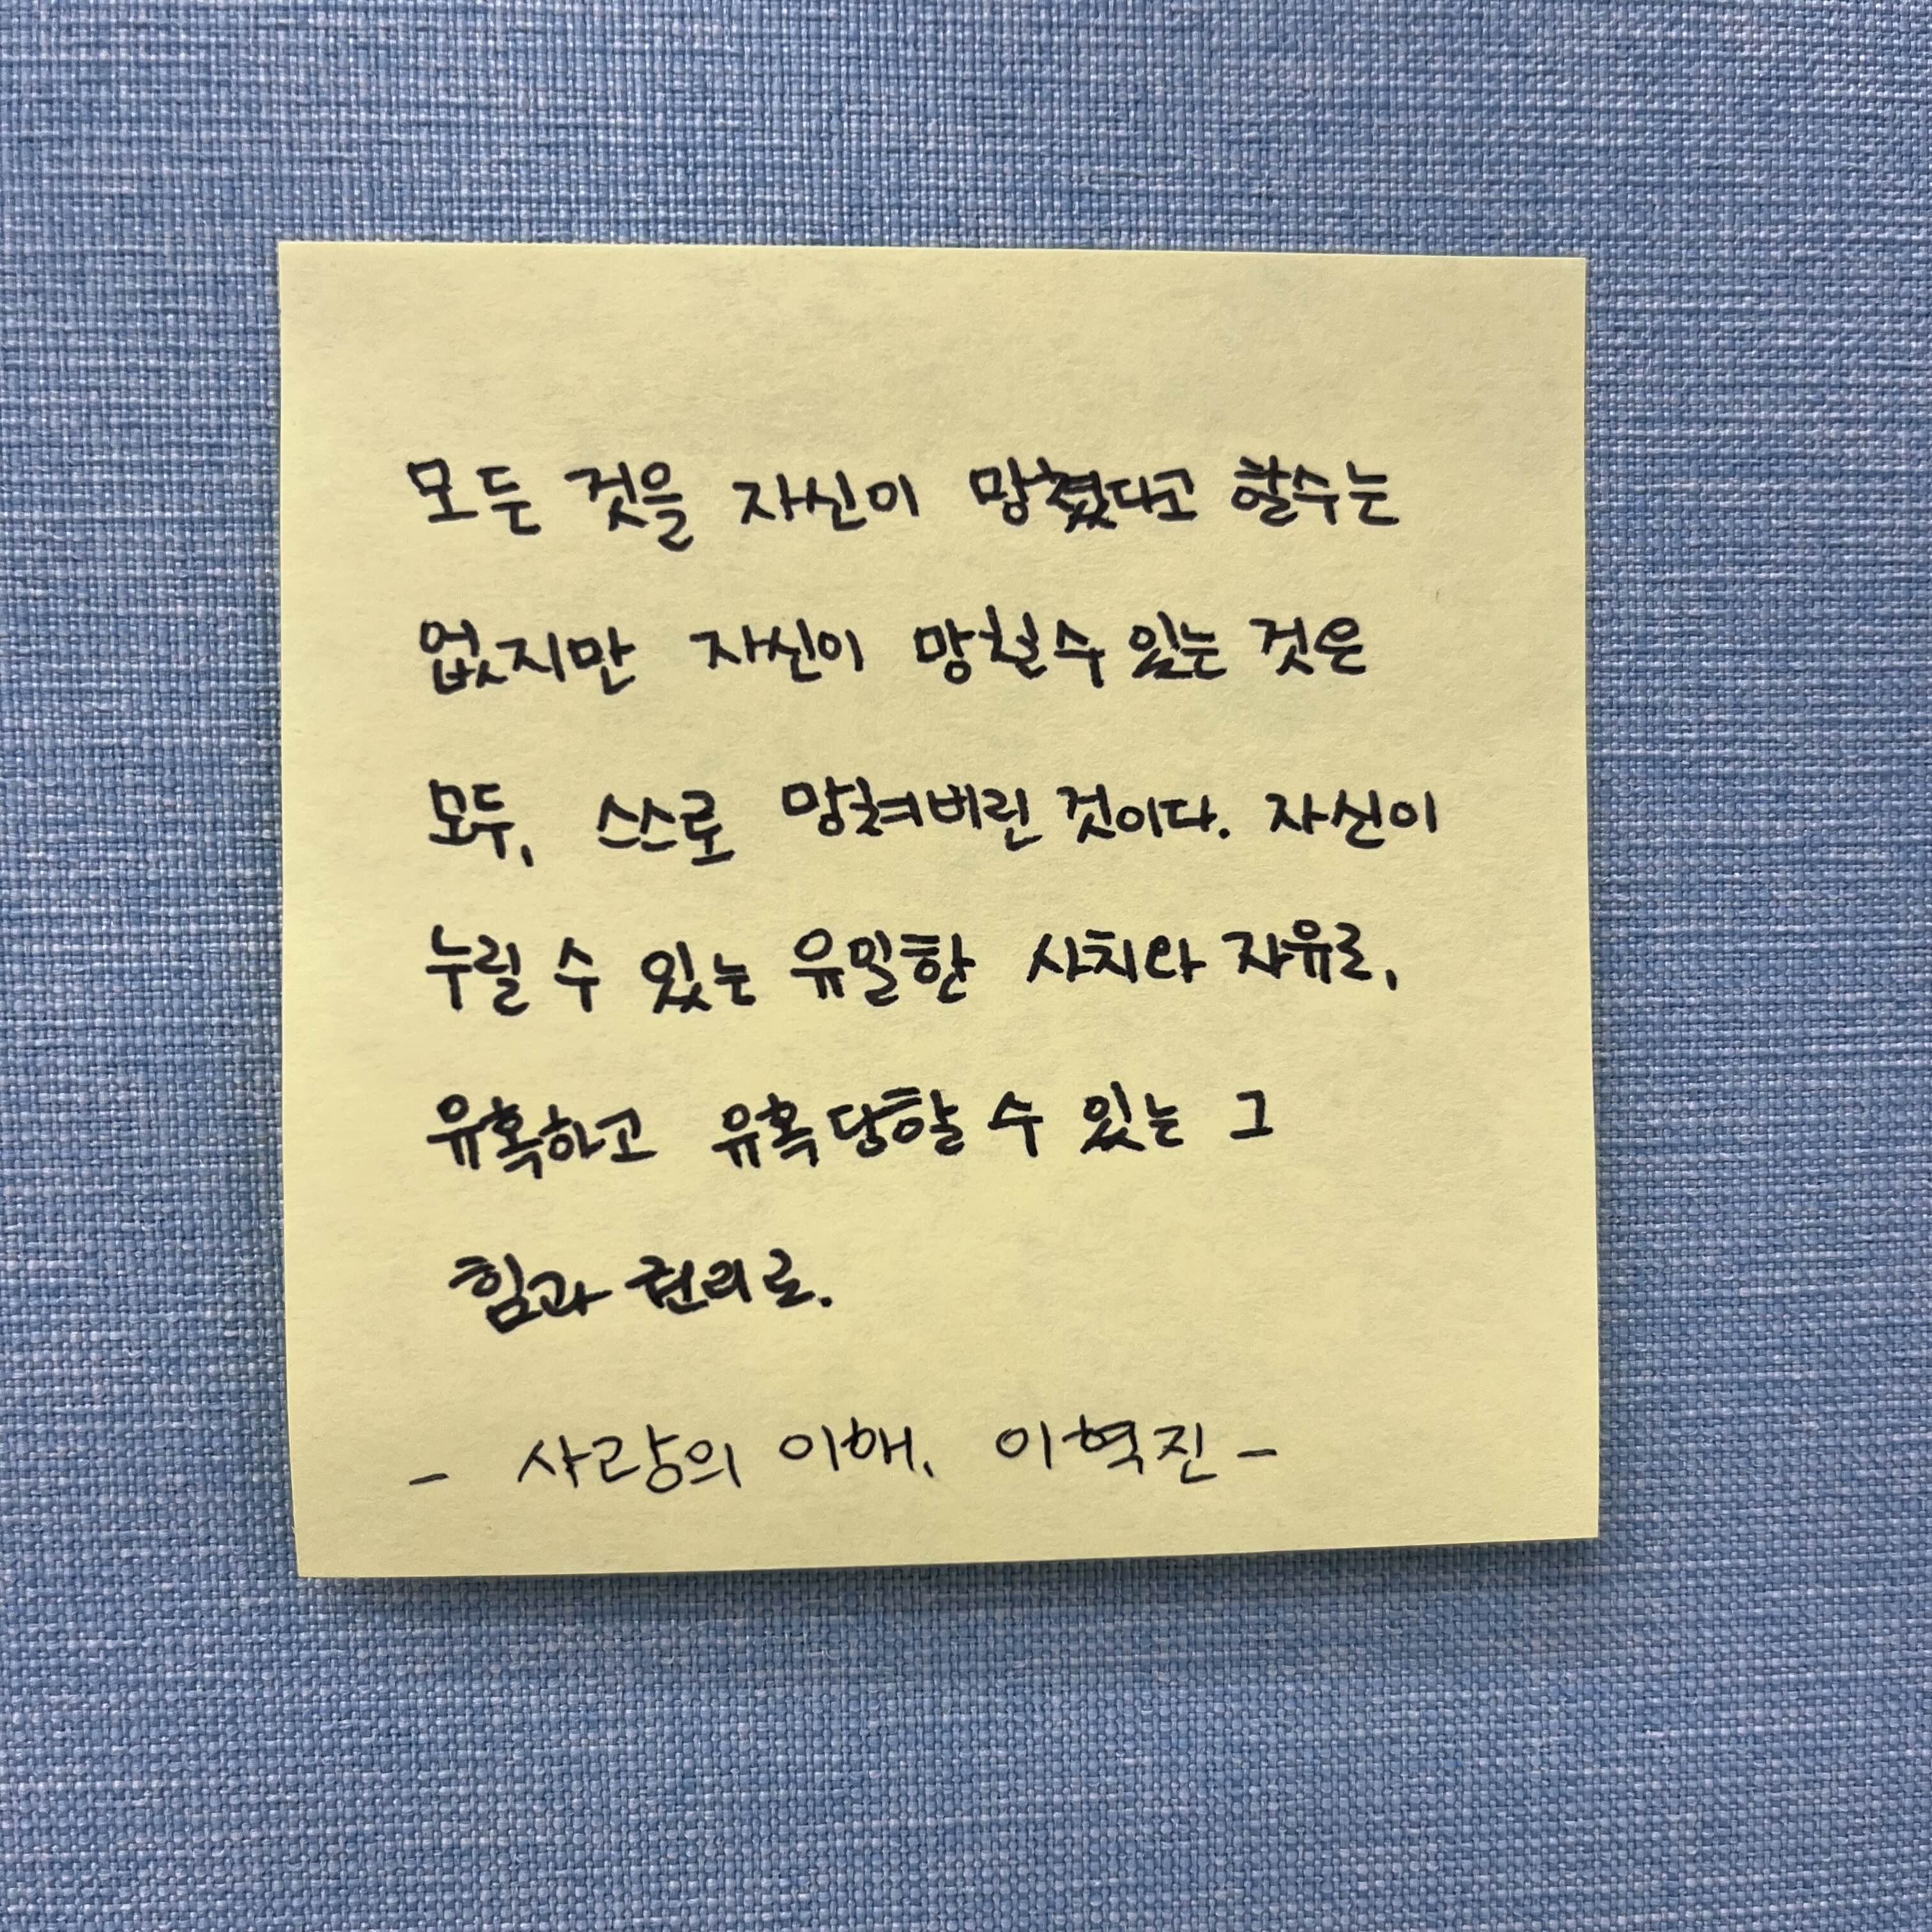 모든 것을 자신이 망쳤다고 할수는
없지만 자신이 망칠수 있는 것은
모두, 스스로 망쳐버린 것이다. 자신이
누릴 수 있는 유일한 사치와 자유로,
유혹하고 유혹당할 수 있는 그
힘과 권리로.
- 사랑의 이해, 이혁진 -